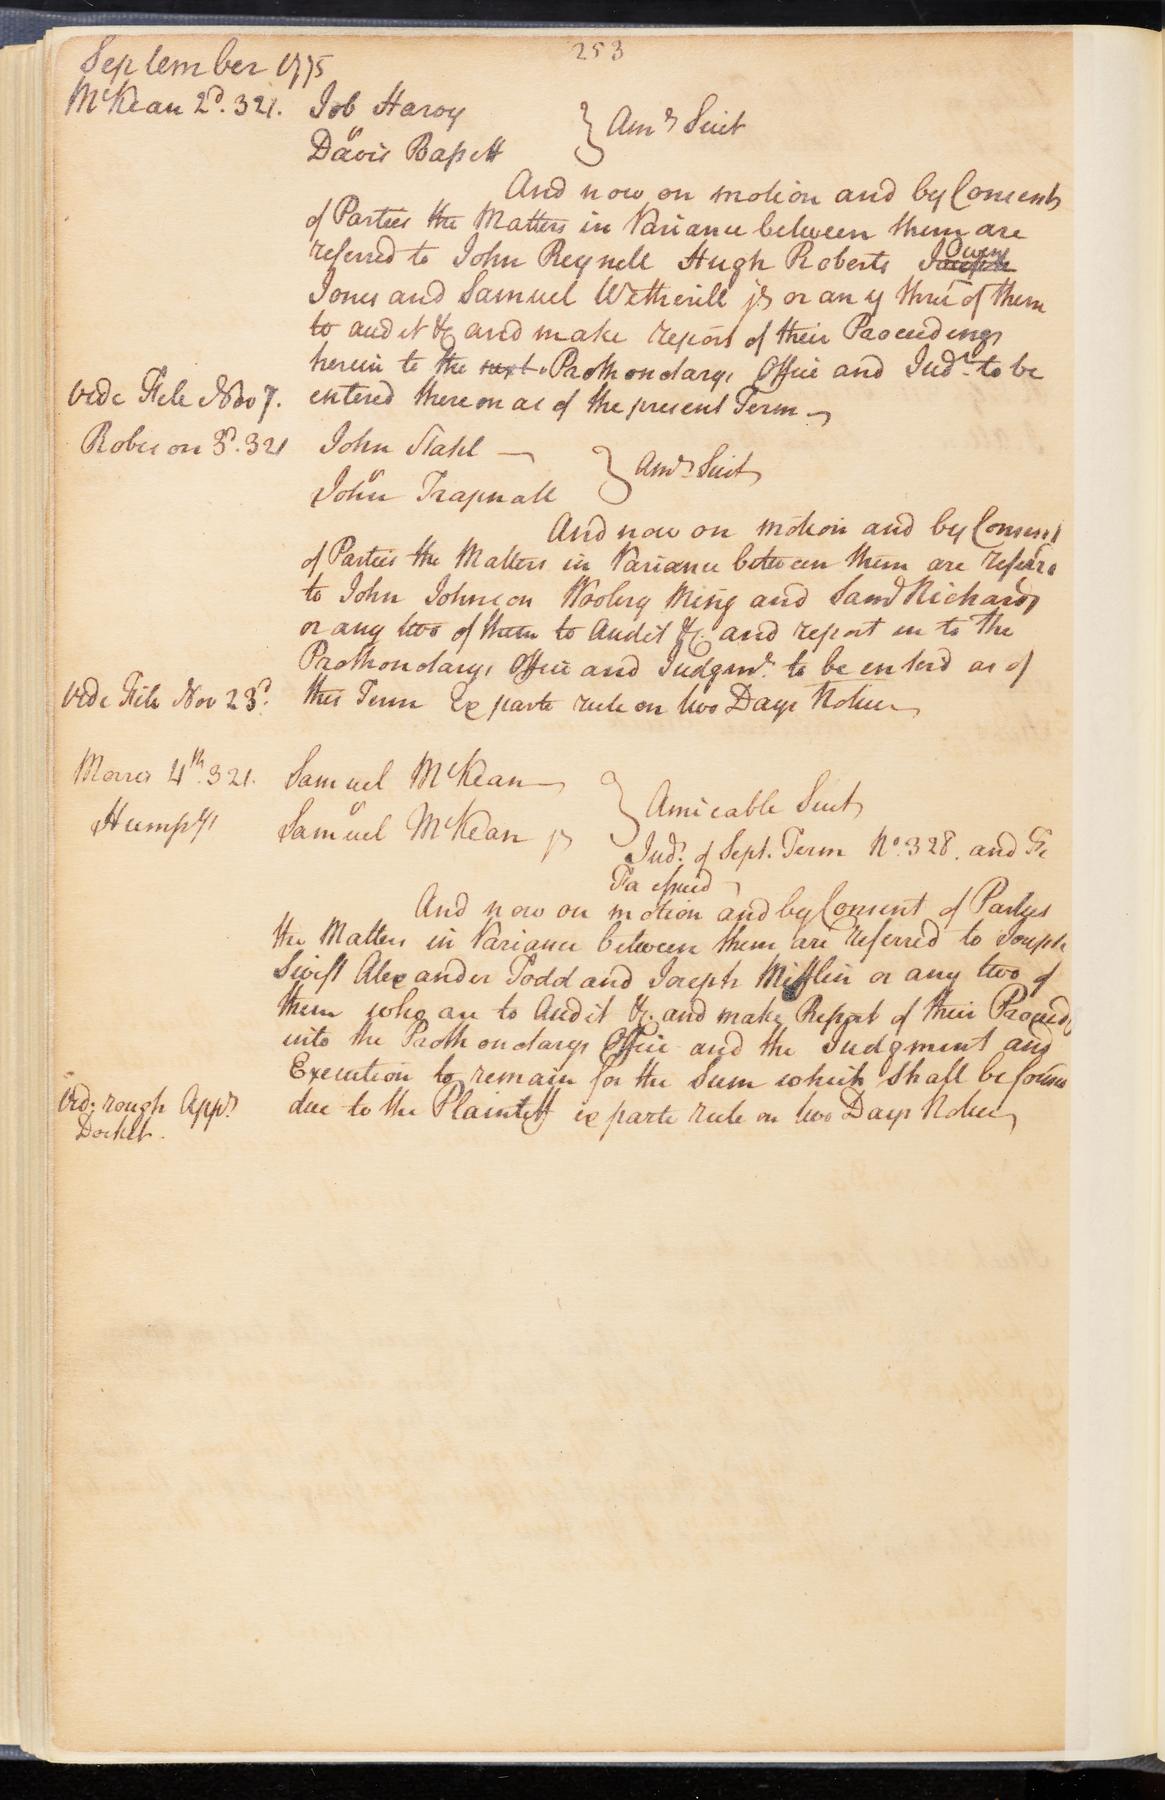 253
September 1775
McKean 2d. 321. Job Harvy
Davis Bassett
} Amb Suit
And now on motion and by Consent
of Parties the Matters in Variance between them are
referred to John Reynell Hugh Roberts Owen
Jones and Samuel Wetherill jr or any three of them
to audit &c and make report of their Proceedings
herein to the next Prothonotarys Office and Judt to be
Vide File Nov 7. entered thereon as of the present Term
Roberson 3d. 321 John Stahl
John Trapnall
} Amb Suit
And now on motion and by Consent
of Parties the Matters in Variance between them are referrd
to John Johnson Woolery Ming and Saml Richards
or any two of them to Audit &c. and report in to the
Prothonotarys Office and Judgmt. to be enterd as of
Vide File Nov 23d. this Term Ex parte rule on two Days Notice
Morris 4th. 321. Samuel McKean
Humpys Samuel McKean jr
} Amicable Suit
Judt. of Sept. Term No. 328. and Fi
Fa issued
And now on motion and by Consent of Parties
the Matters in Variance between them are referred to Joseph
Swift Alexander Todd and Joseph Mifflin or any two of
them who are to Audit &c. and make Report of their Proceeds
into the Prothonotarys Office and the Judgment and
Execution to remain for the Sum which shall be found
Vid: rough App. due to the Plaintiff ex parte rule on two Days Notice
Docket.